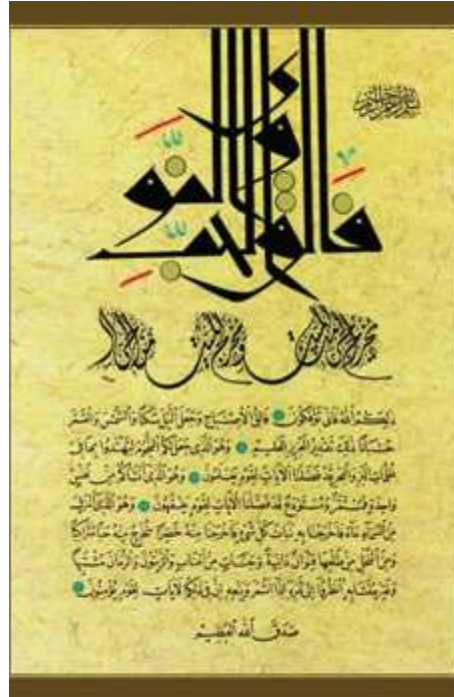 بسم الله الرحمن الرحيم
فالق الحب والنوى
يخرج الحي من الميت ومخرج الميت من الحي
ذلكم الله فأنى تؤفكون فالق الإصباح وجعل الليل سكنا والشمس والقمر
حسبانا ذلك تقدير العزيز العليم وهو الذي جعل لكم النجوم لتهتدوا بها في
ظلمات البر والبحر قد فصلنا الآيات لقوم يعلمون وهو الذي أنشأكم من نفس
واحدة فمستقر ومستودع قد فصلنا الآيات لقوم يفقهون وهو الذي أنزل
من السماء ماء فأخرجنا به نبات كل شيء فأخرجنا منه خضرا نخرج منه حبا متراكبا
ومن النخل من طلعها قنوان دانية وجنات من أعناب والزيتون والرمان مشتبها
وغير متشابه انظروا إلى ثمره إذا أثمر وينعه إن في ذلكم لآيات لقوم يؤمنون
صدق الله العظيم